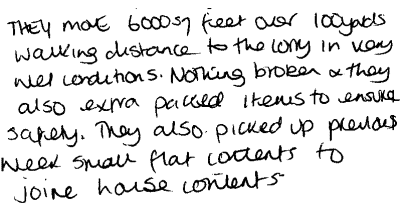 THEY move 6000sq feet over 100yards
walking distance to the lorry in very
wet conditions. Nothing broken & they
also extra packed items to ensure
safety. They also picked up previous
week small flat contents to
joine house contents